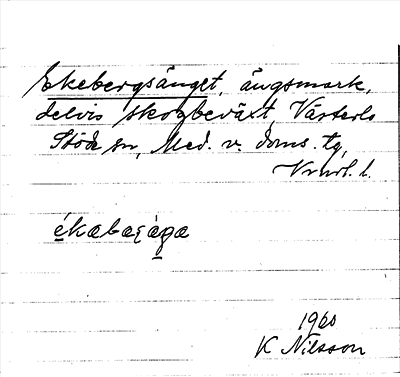 Ekebergsänget, ängsmark,
delvis skogbeväxt, Västerlo
Stöde sn, Med. v. doms. tg,
Vnrl. l.
ékabaʒága
1960
K Nilsson